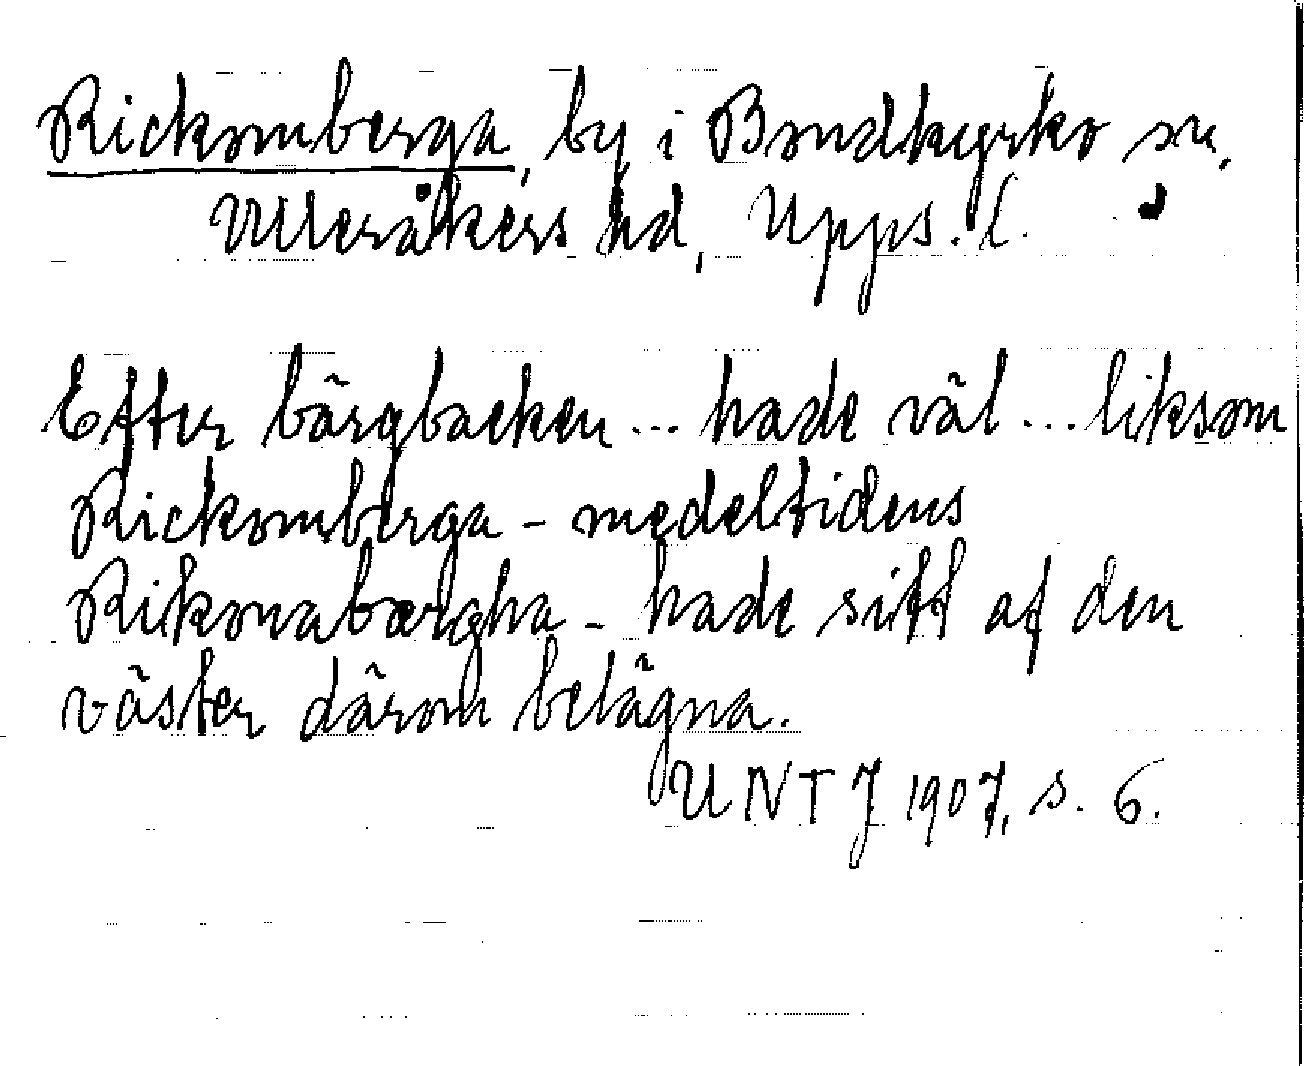 Rickomberga, by i Bondkyrko sn,
Ulleråkers hd, Upps. l.
Efter bärgbacken ... hade väl ... liksom
Rickomberga - medeltidens
Rikonabærgha - hade sitt af den
väster därom belägna.
UNTJ 1907, s. 6.